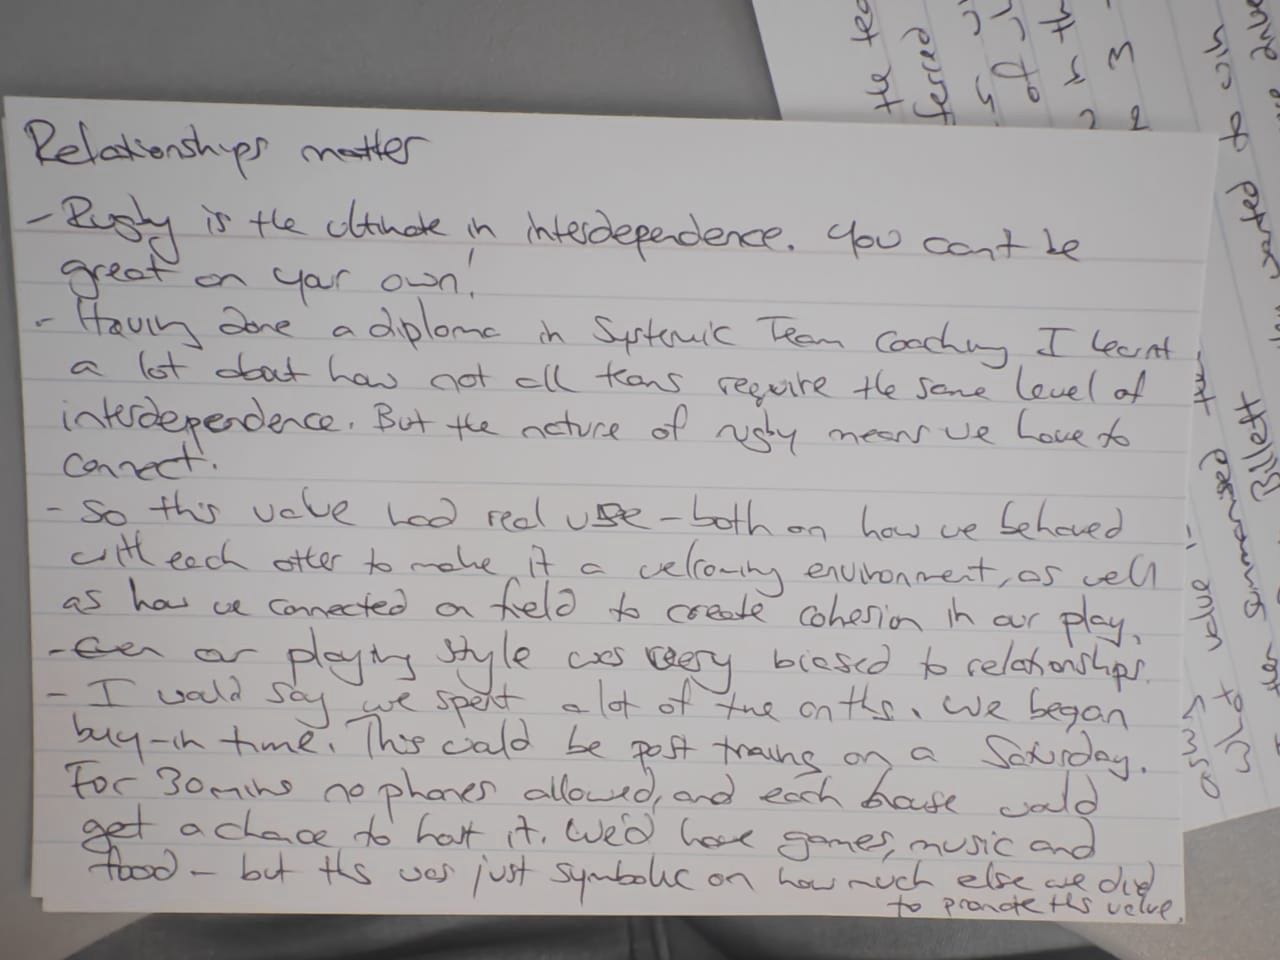 Relationships matter
- Rugby is the ultimate in interdependence. You can't be
great on your own!
- Having done a diploma in Systemic Team Coaching I learnt
a lot about how not all teams require the same level of
interdependence. But the nature of rugby means we have to
connect.
- So this value had real use - both on how we behaved
with each other to make it a welcoming environment, as well
as how we connected on field to create cohesion in our play.
- Even our playing style was very biased to relationships.
- I would say we spent a lot of time on this. We began
buy-in time. This would be post training on a Saturday.
For 30mins no phones allowed, and each house would
get a chance to host it. We'd have games, music and
food - but this was just symbolic on how much else we did
to promote this value.
the
of
in th
3
to win
wanted
Billett
summarised the
value